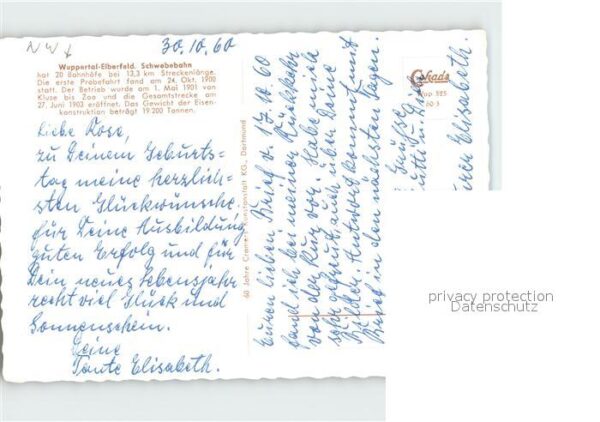 30.10.60
Wuppertal-Elberfeld. Schwebebahn
hat 20 Bahnhöfe bei 13,3 km Streckenlänge.
Die erste Probefahrt fand am 24. Okt. 1900
statt. Der Betrieb wurde am 1. Mai 1901 von
Kluse bis Zoo und die Gesamtstrecke am
27. Juni 1903 eröffnet. Das Gewicht der Eisen-
konstruktion beträgt 19.200 Tonnen.
Liebe Rose,
zu Deinem Geburts-
tag meine herzlich-
sten Glückwünsche
für Deine Ausbildung
guten Erfolg und für
Dein neues Lebensjahr
recht viel Glück und
Sonnenschein.
Deine
Tante Elisabeth.
60 Jahre Cramers Kunstanstalt KG., Dortmund
Euren lieben Brief v. 17.10.60
fand ich bei meiner Rückkehr
von der Kur vor. Habe mich
sehr gefreut, auch über Deine
Bilder. Antwort kommt mit
Brief in den nächsten Tagen.
Grüße
Mutti u.
Eurer Elisabeth.
Cekade
privacy protection
Datenschutz